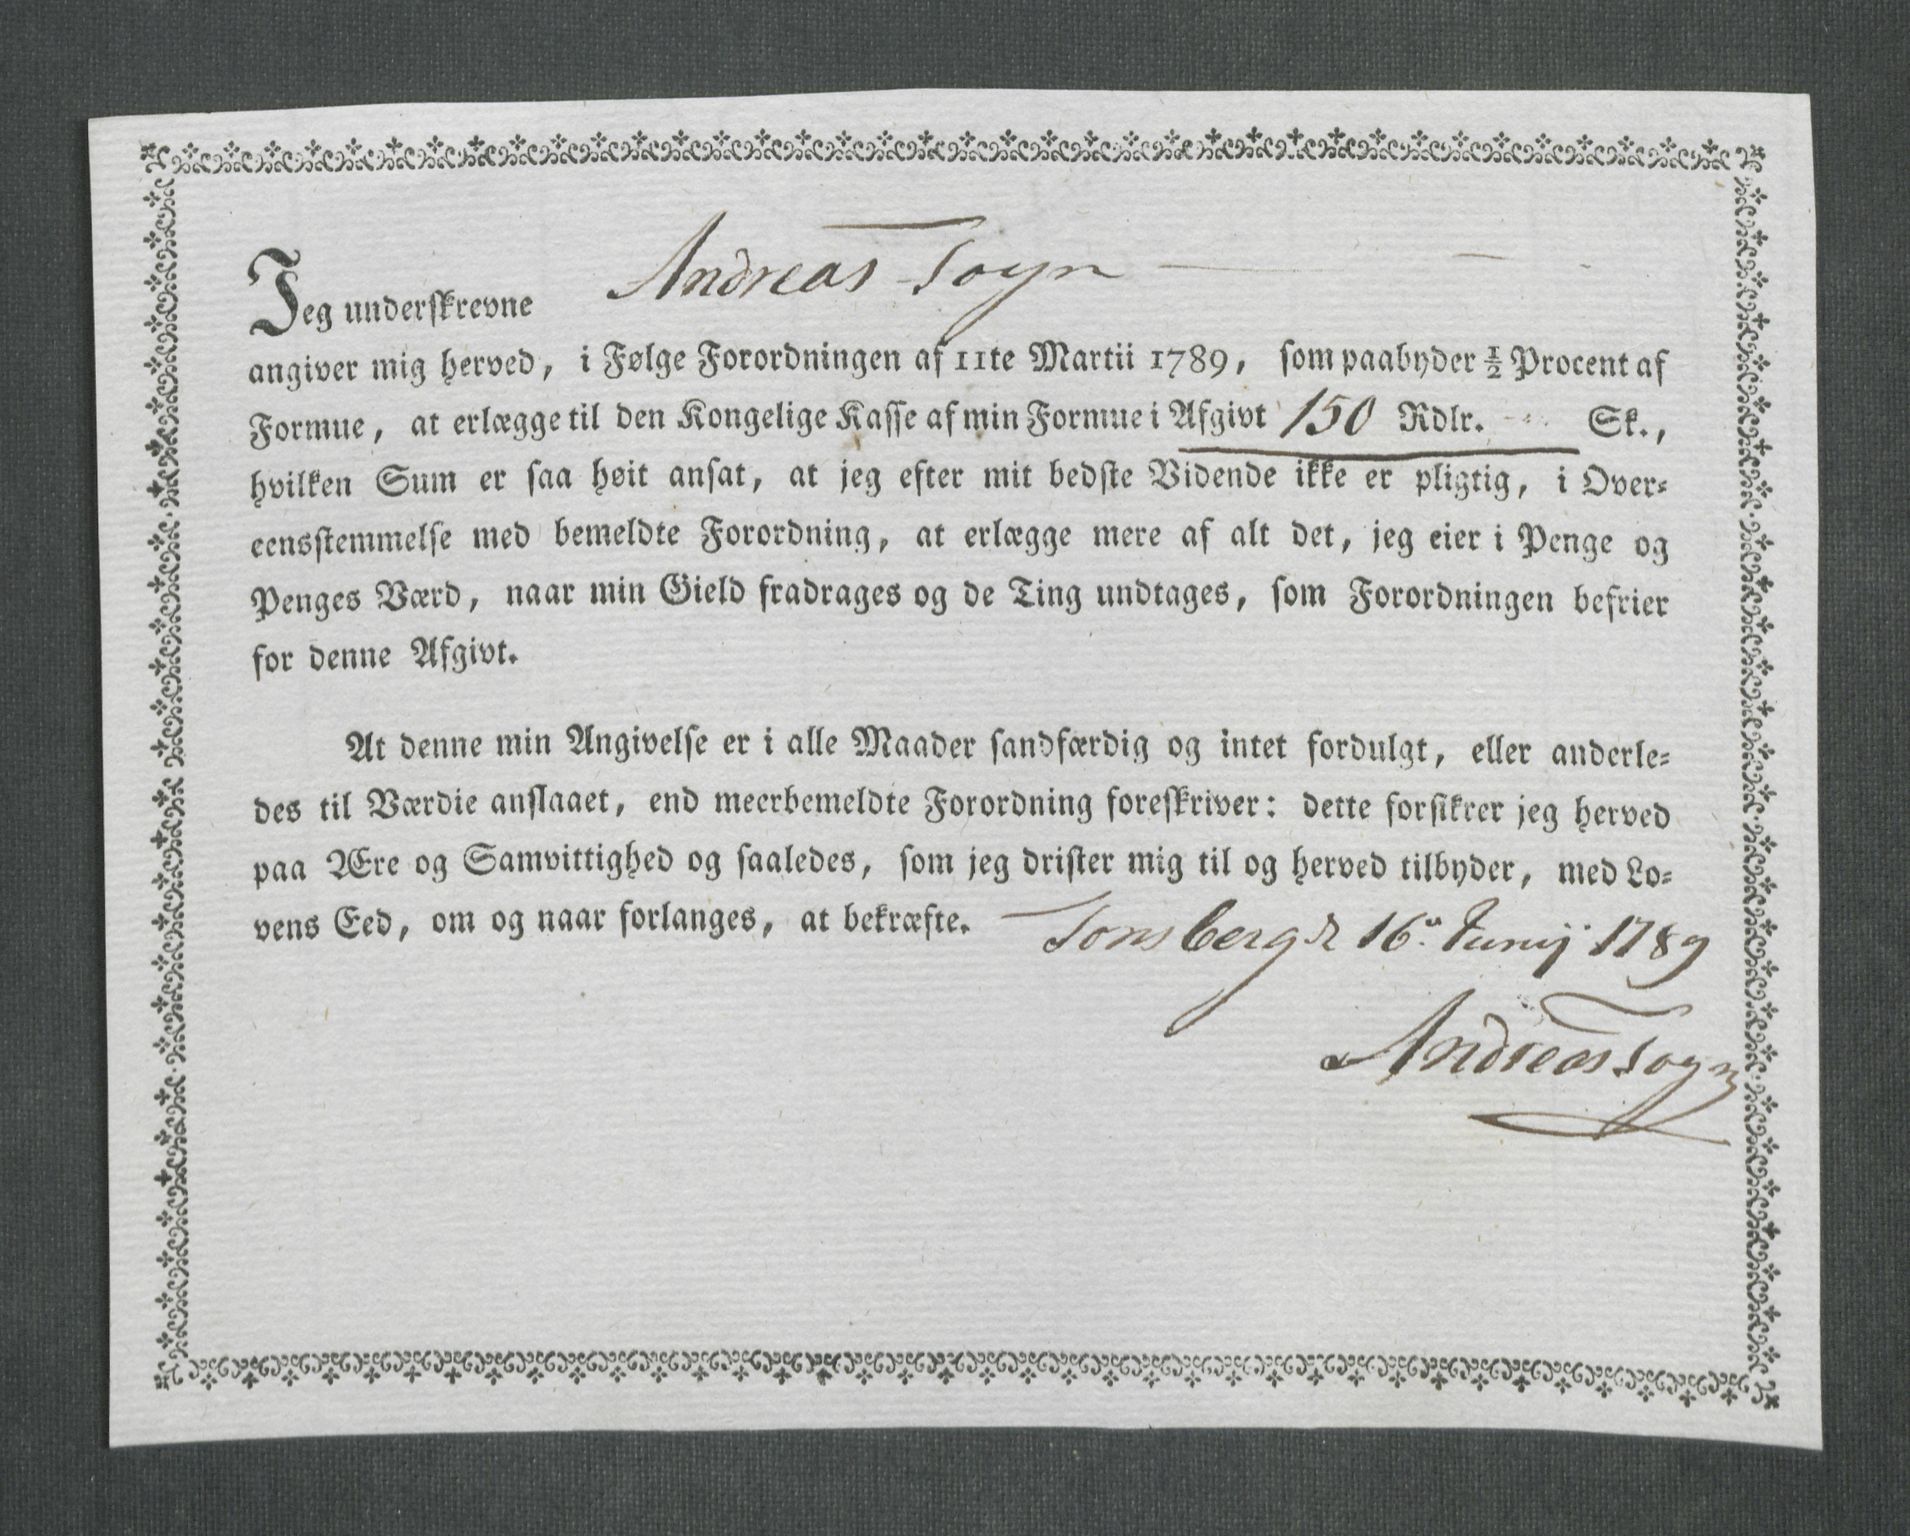 Jeg underskrevne Andreas Togn
angiver mig herved, i Følge Forordningen af 11te Martii 1789, som paabyder ½ Procent af
Formue, at erlægge til den Kongelige Kasse af min Formue i Afgivt 150 Rdlr. Sk.,
hvilken Sum er saa høit ansat, at jeg efter mit bedste Vidende ikke er pligtig, i Over-
eensstemmelse med bemeldte Forordning, at erlægge mere af alt det, jeg eier i Penge og
Penges Værd, naar min Gield fradrages og de Ting undtages, som Forordningen befrier
for denne Afgivt.
At denne min Angivelse er i alle Maader sandfærdig og intet fordulgt, eller anderle-
des til Værdie anslaaet, end meerbemeldte Forordning foreskriver: dette forsikrer jeg herved
paa Ære og Samvittighed og saaledes, som jeg drister mig til og herved tilbyder, med Lo-
vens Eed, om og naar forlanges, at bekræfte.
Tonsberg d 16. Junij 1789
Andreas Togn